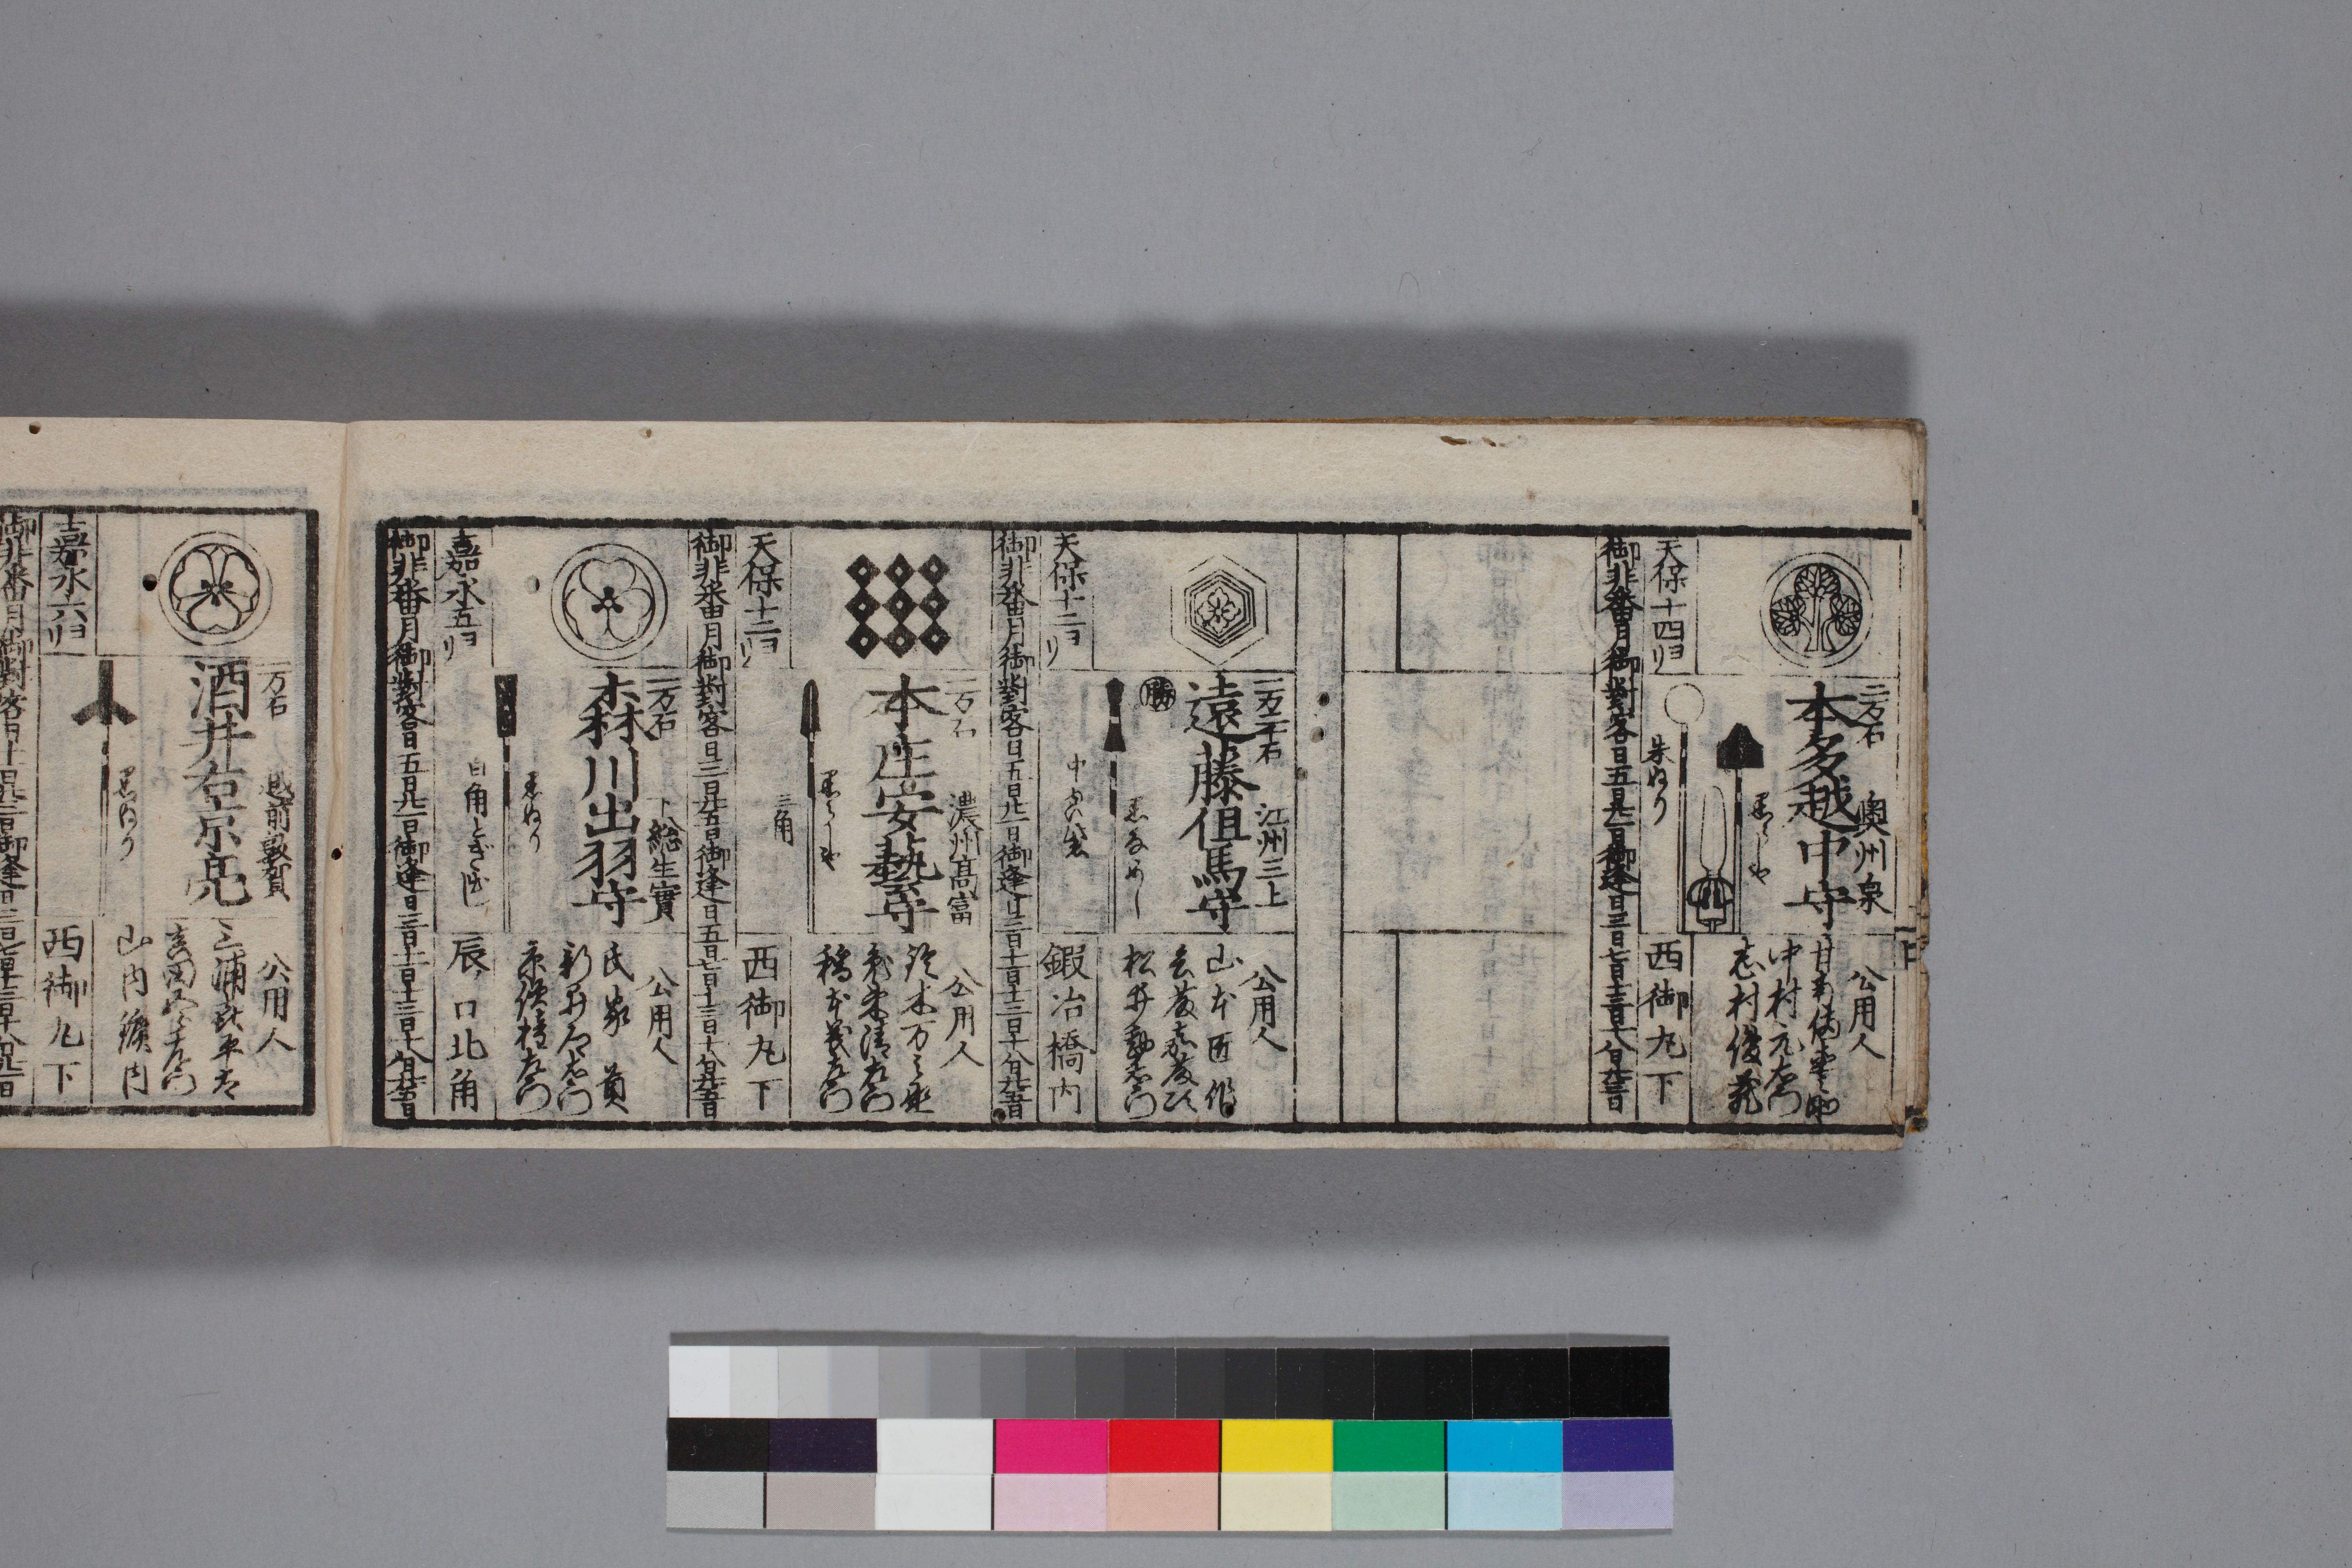 二万石
奥州泉
本多越中守
黒らしや
朱ぬり
天保十四ヨリ
公用人
中村元右衛門
志村俊蔵
西御丸下
御非番月御對客日五日廿一日御逢日三日七日十三日十八日廿三日
上
一万二千石
江州三上
遠藤但馬守
勝
天保十二ヨリ
公用人
山本匠作
松井勘右衛門
鍜冶橋内
御非番月御對客日五日廿一日御逢日三日十一日十三日十八日廿五日
一万石
濃州高富
本庄安藝守
黒らしや
三角
天保十二ヨリ
公用人
鈴木万之丞
西御丸下
御非番月御對客日三日廿五日御逢日五日七日十三日十八日廿五日
一万石
下総生實
森川出羽守
黒ぬり
嘉永五ヨリ
公用人
氏家貢
新井左右衛門
辰ノ口北角
御非番月御對客日五日廿一日御逢日三日十一日十三日十八日廿五日
一万石
越前敦賀
酒井右京亮
黒ぬり
嘉永六ヨリ
公用人
三浦
山内
西御丸下
御非番月御對客日